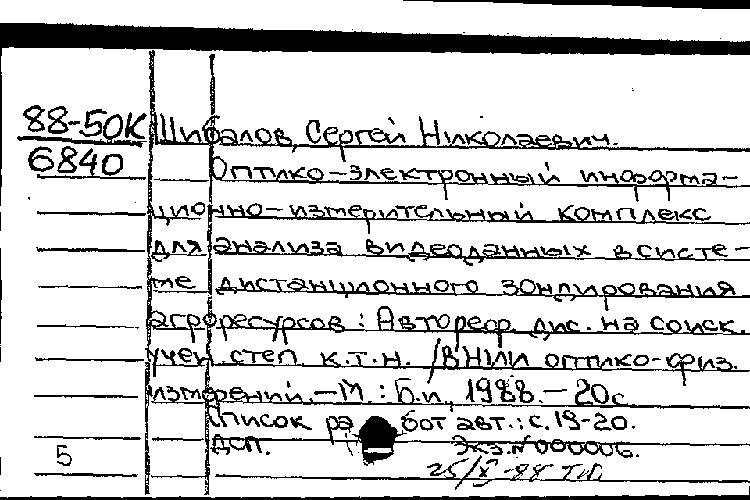 88-50К Шибалов, Сергей Николаевич.
6840 Оптико-электронный информа-
ционно-измерительный комплекс
для анализа видеоданных в систе-
ме дистанционного зондирования
агроресурсов: Автореф. дис. на соиск.
учен степ к.т.н. /ВНИИ оптико-физ.
измерений.-М.: Б.и., 1988.-20с
Список ра бот авт.: с.19-20.
ДСП. Экз.N000006.
5
25/X-88